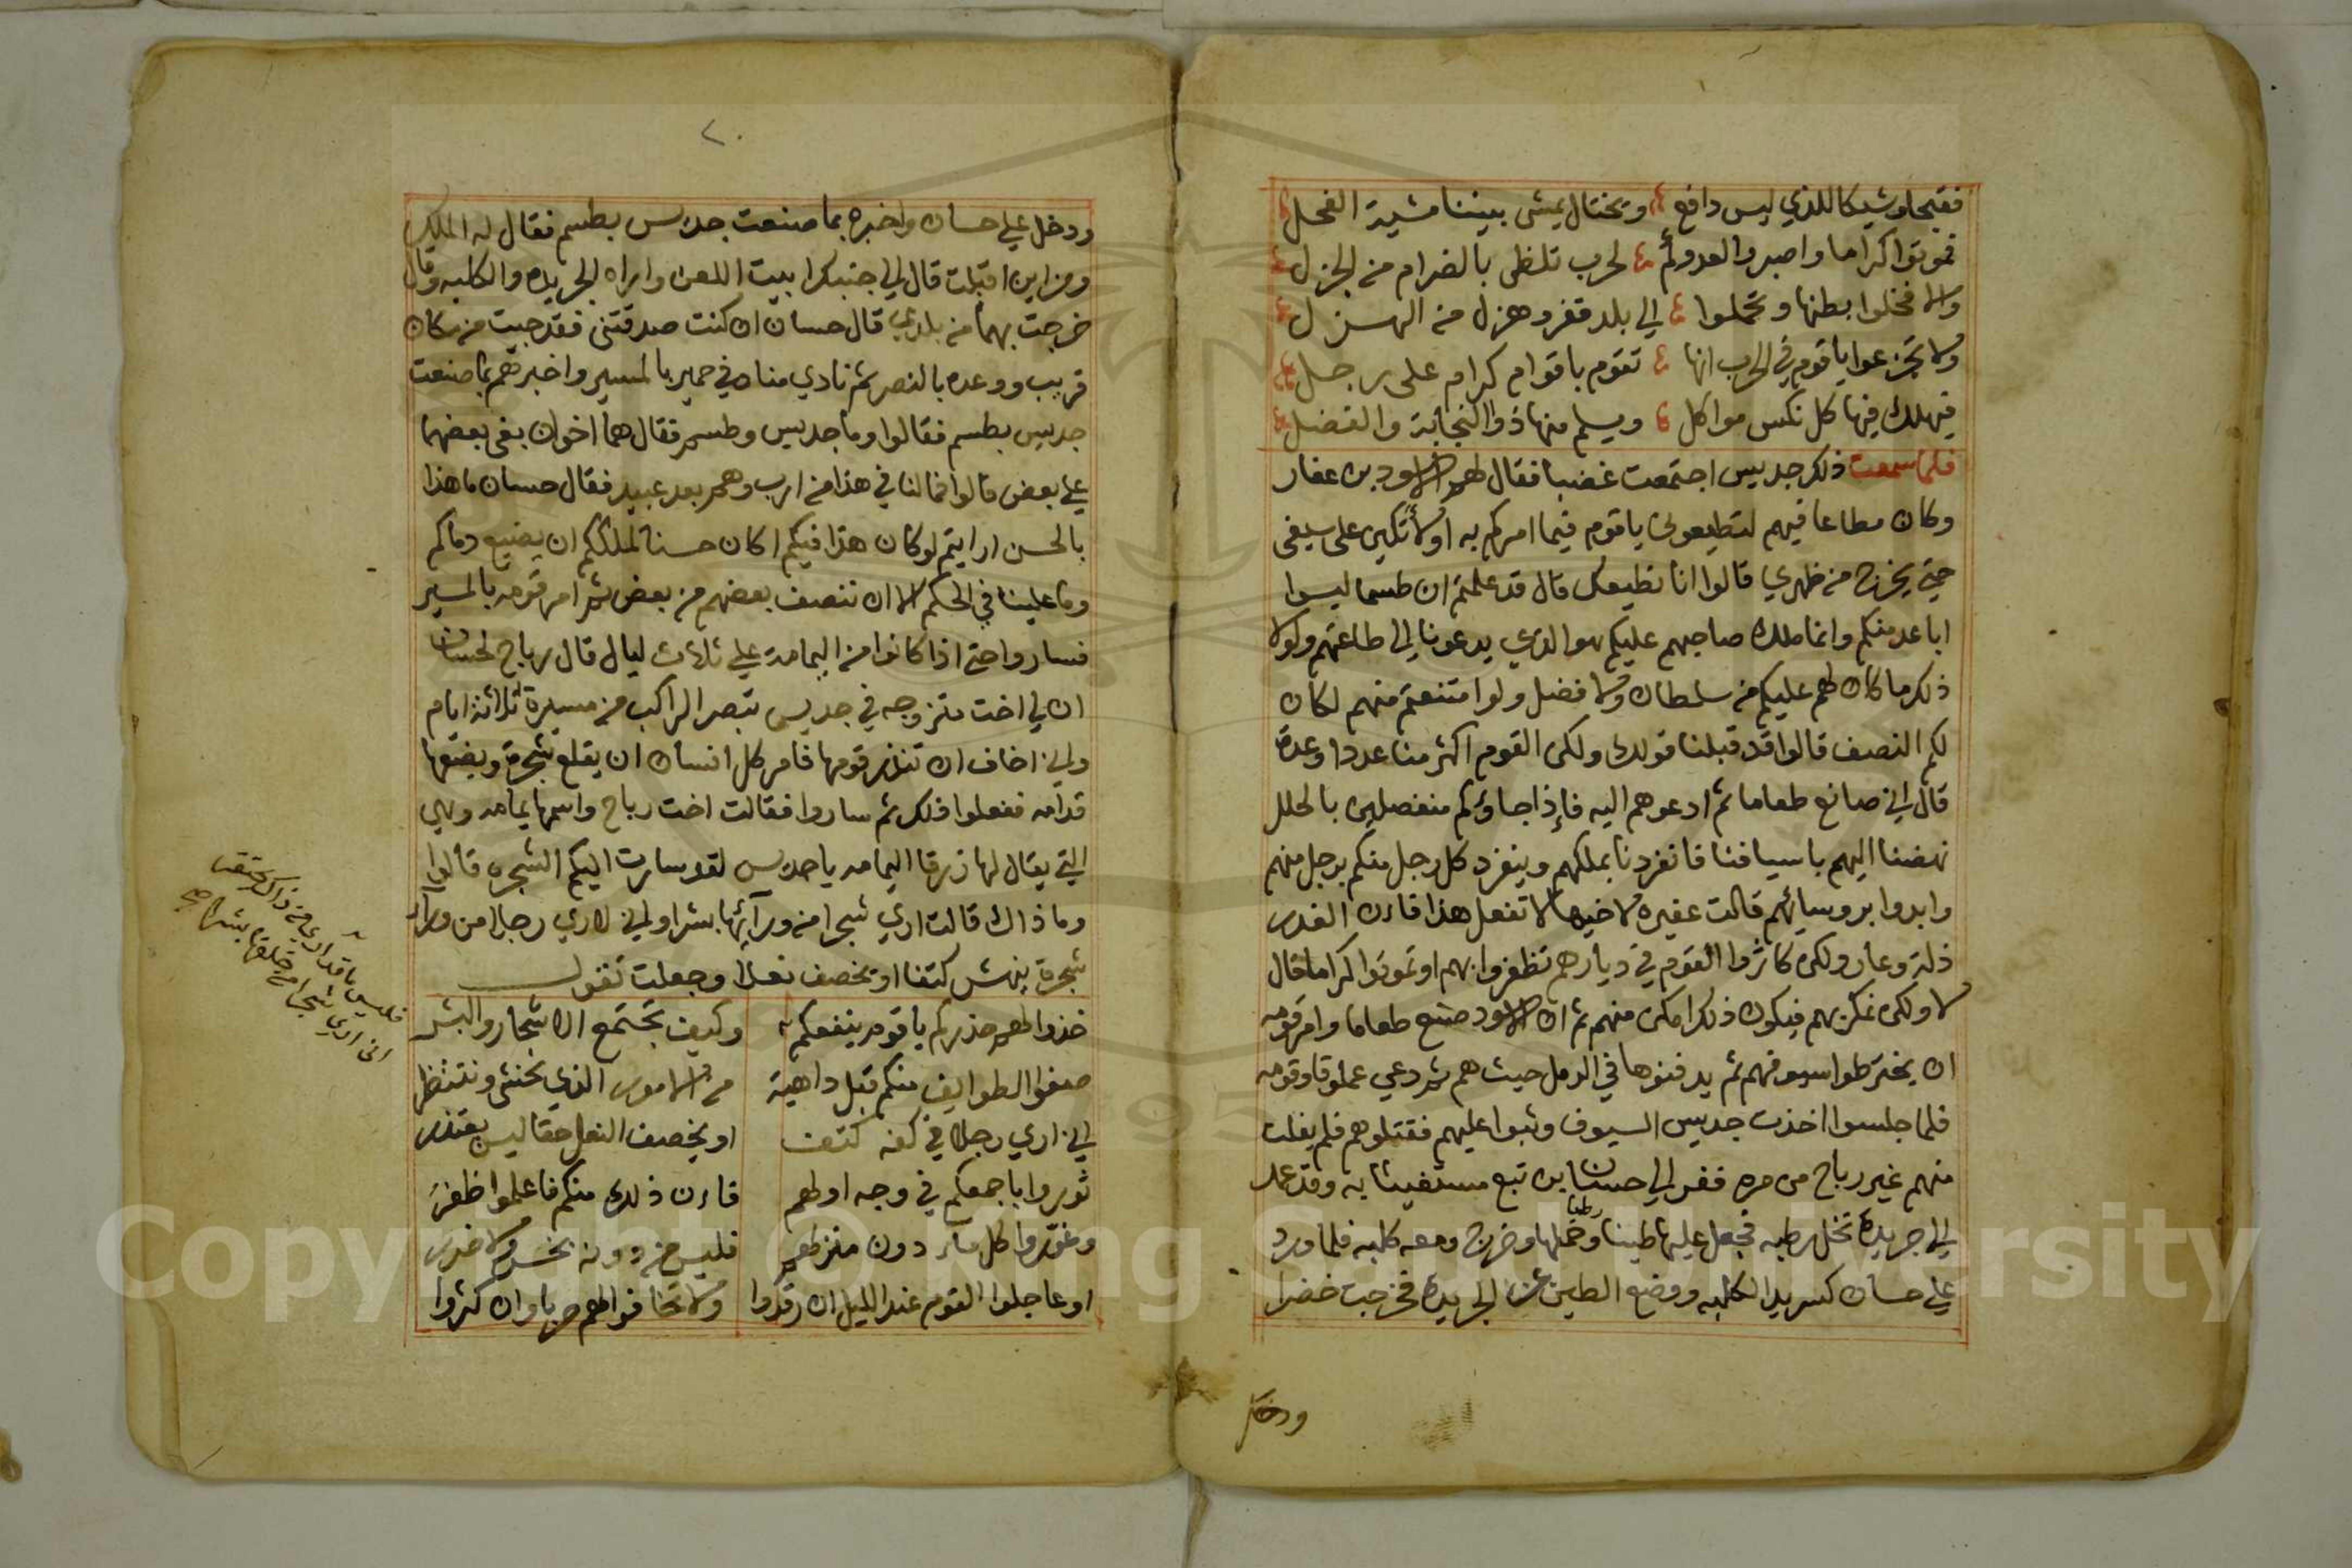 فقبحا وشيكا للذي ليس دافع ويختال يمشي بيننا مشية الفحل
فموتوا كراما واصبروا لعدوكم لحرب تلظى بالضرام من الجزل
والا فخلوا بطنها وتحملوا الي بلد قفر وهزل من الهزل
ولا تجزعوا يا قوم في الحرب انها تقوم باقوام كرام على رجل
فيهلك فيها كل نكس مواكل ويسلم منها ذو النجابة والفضل
فلما سمعت ذلك جديس اجتمعت غضبا فقال لهم الاسود بن عفار
وكان مطاعا فيهم لتطيعوني يا قوم فيما امركم به او لأتكين على سيفي
حتي يخرج من ظهري قالوا انا نطيعك قال قد علمتم ان طسما ليسوا
اباعد منكم وانما ملك صاحبهم عليكم هو الذي يدعونا الي طاعتهم ولولا
ذلك ما كان لهم عليكم من سلطان ولا فضل ولوا متنعتم منهم لكان
لكم النصف قالوا قد قبلنا قولك ولكن القوم اكثر منا عددا وعدة
قال اني صانع طعاما ثم ادعوهم اليه فإذا جاؤكم منفصلين بالحلل
نهضنا اليهم باسيافنا فانفردنا بملكهم وينفرد كل رجل منكم برجل منهم
وابدوا بروسائهم قالت عفيره لاخيها لا تفعل هذا فاءن الغدر
ذلة وعار ولكن كاثروا القوم في ديارهم تظفروا بهم او تموتوا كراما قال
لا ولكن نمكر بهم فيكون ذلك امكن منهم ثم ان الاسود صنع طعاما وامر قومه
ان يخترطوا سيوفهم ثم يدفنوها في الرمل حيث هم ثم دعي عملوقا وقومه
فلما جلسوا اخذت جديس السيوف وثبوا عليهم فقتلوهم فلم يفلت
منهم غير رباح من مره ففر الي حسان بن تبع مستغيثا به وقد عمد
الي جريدة نخل رطبه فجعل عليها طينا رطبا وحملها وخرج ومعه كلبه فلما ورد
علي حسان كسر يد الكلبه ووضع الطين عن الجريدة فخرجت خضرا
ودخل
٢٠
ودخل علي حسان واخبره بما صنعت جديس بطسم فقال له الملك
ومن اين اقبلت قال لي جنبكرا بيت اللعن واراه الجريده والكلبه وقال
خرجت بهما من بلدي قال حسان ان كنت صدقتني فقد جيت من مكان
قريب ووعده بالنصر ثم نادي مناد في حمير بالمسير واخبرهم بما صنعت
جديس بطسم فقالوا وما جديس وطسم فقال هما اخوان بغى بعضهما
علي بعض قالوا فما لنا في هذا من ارب وهم بعد عبيد فقال حسان ما هذا
بالحسن ارايتم لو كان هذا فيكم اكان حسنا لملككم ان يضيع دماكم
وما علينا في الحكم الا ان ننصف بعضهم من بعض ثم امر قومه بالمسير
فساروا حتي اذا كانوا من اليمامة علي ثلاث ليال قال رباح لحسان
ان لي اخت متزوجه في جديس تبصر الراكب من مسيرة ثلاثة ايام
واني اخاف ان تنذر قومها فامر كل انسان ان يقلع شجرة ويضعها
قدامه ففعلوا ذلك ثم ساروا فقالت اخت رباح واسمها يمامه وهي
التي يقال لها زرقا اليمامه يا جديس لقد سارت اليكم الشجره قالوا
وما ذاك قالت اري شجرا من ورآئها بشرا واني لاري رجلا من ورآء
شجرة ينهش كتفا او يخصف نعلا وجعلت تقول
خذوا لهم حذركم يا قوم ينفعكم وكيف تجتمع الاشجار والبشر
صفوا الطوايف منكم قبل داهية من الامور الذي تخشى وتنتظر
اني اري رجلا في كفه كتف او يخصف النعل حقا ليس يعتذر
ثوروا باجمعكم في وجه اولهم فاءن ذلك منكم فاعلموا ظفر
وغوروا كل ماء دون منزلهم فليس من دونه نحس ولا ضرر
او عاجلوا القوم عند الليل ان رقدوا ولا تخافوا لهم حربا وان كثروا
فليس ما قد اري من ذاك يحتقر
اني اري شجرا من خلفها بشر